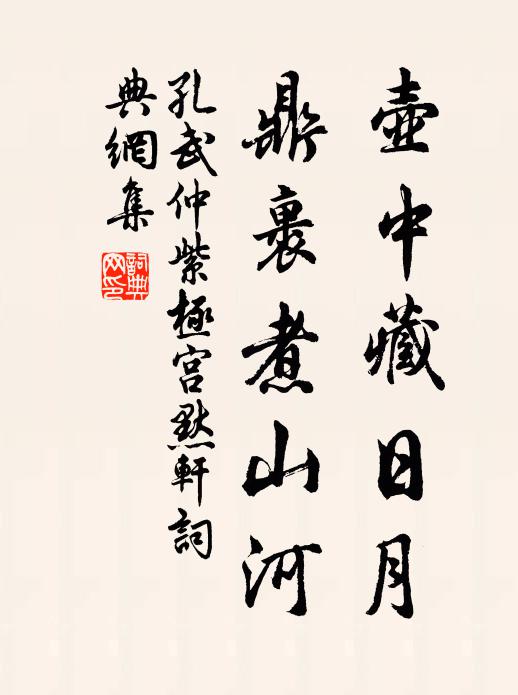 壺中藏日月
鼎裏煮山河
孔武仲紫極宫默軒詞
典網集
詞典
网印